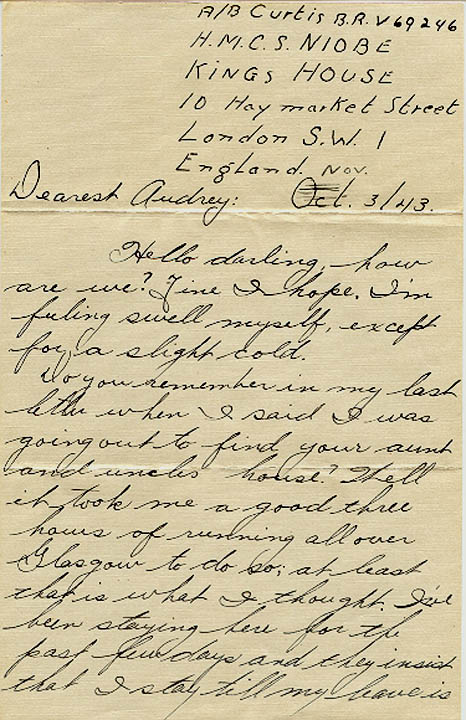 A/B Curtis B.R. V69246
H.M.C.S. NIOBE
KINGS HOUSE
10 Haymarket Street
London S.W. 1
England. Nov.
Dearest Audrey: Oct. 3/43.
Hello darling, how
are we? Fine I hope. I'm
feeling swell myself, except
for a slight cold.
Do you remember in my last
letter when I said I was
going out to find your aunt
and uncles house? Well
it took me a good three
hours of running all over
Glasgow to do so; at least
that is what I thought. I've
been staying here for the
past few days and they insist
that I stay till my leave is